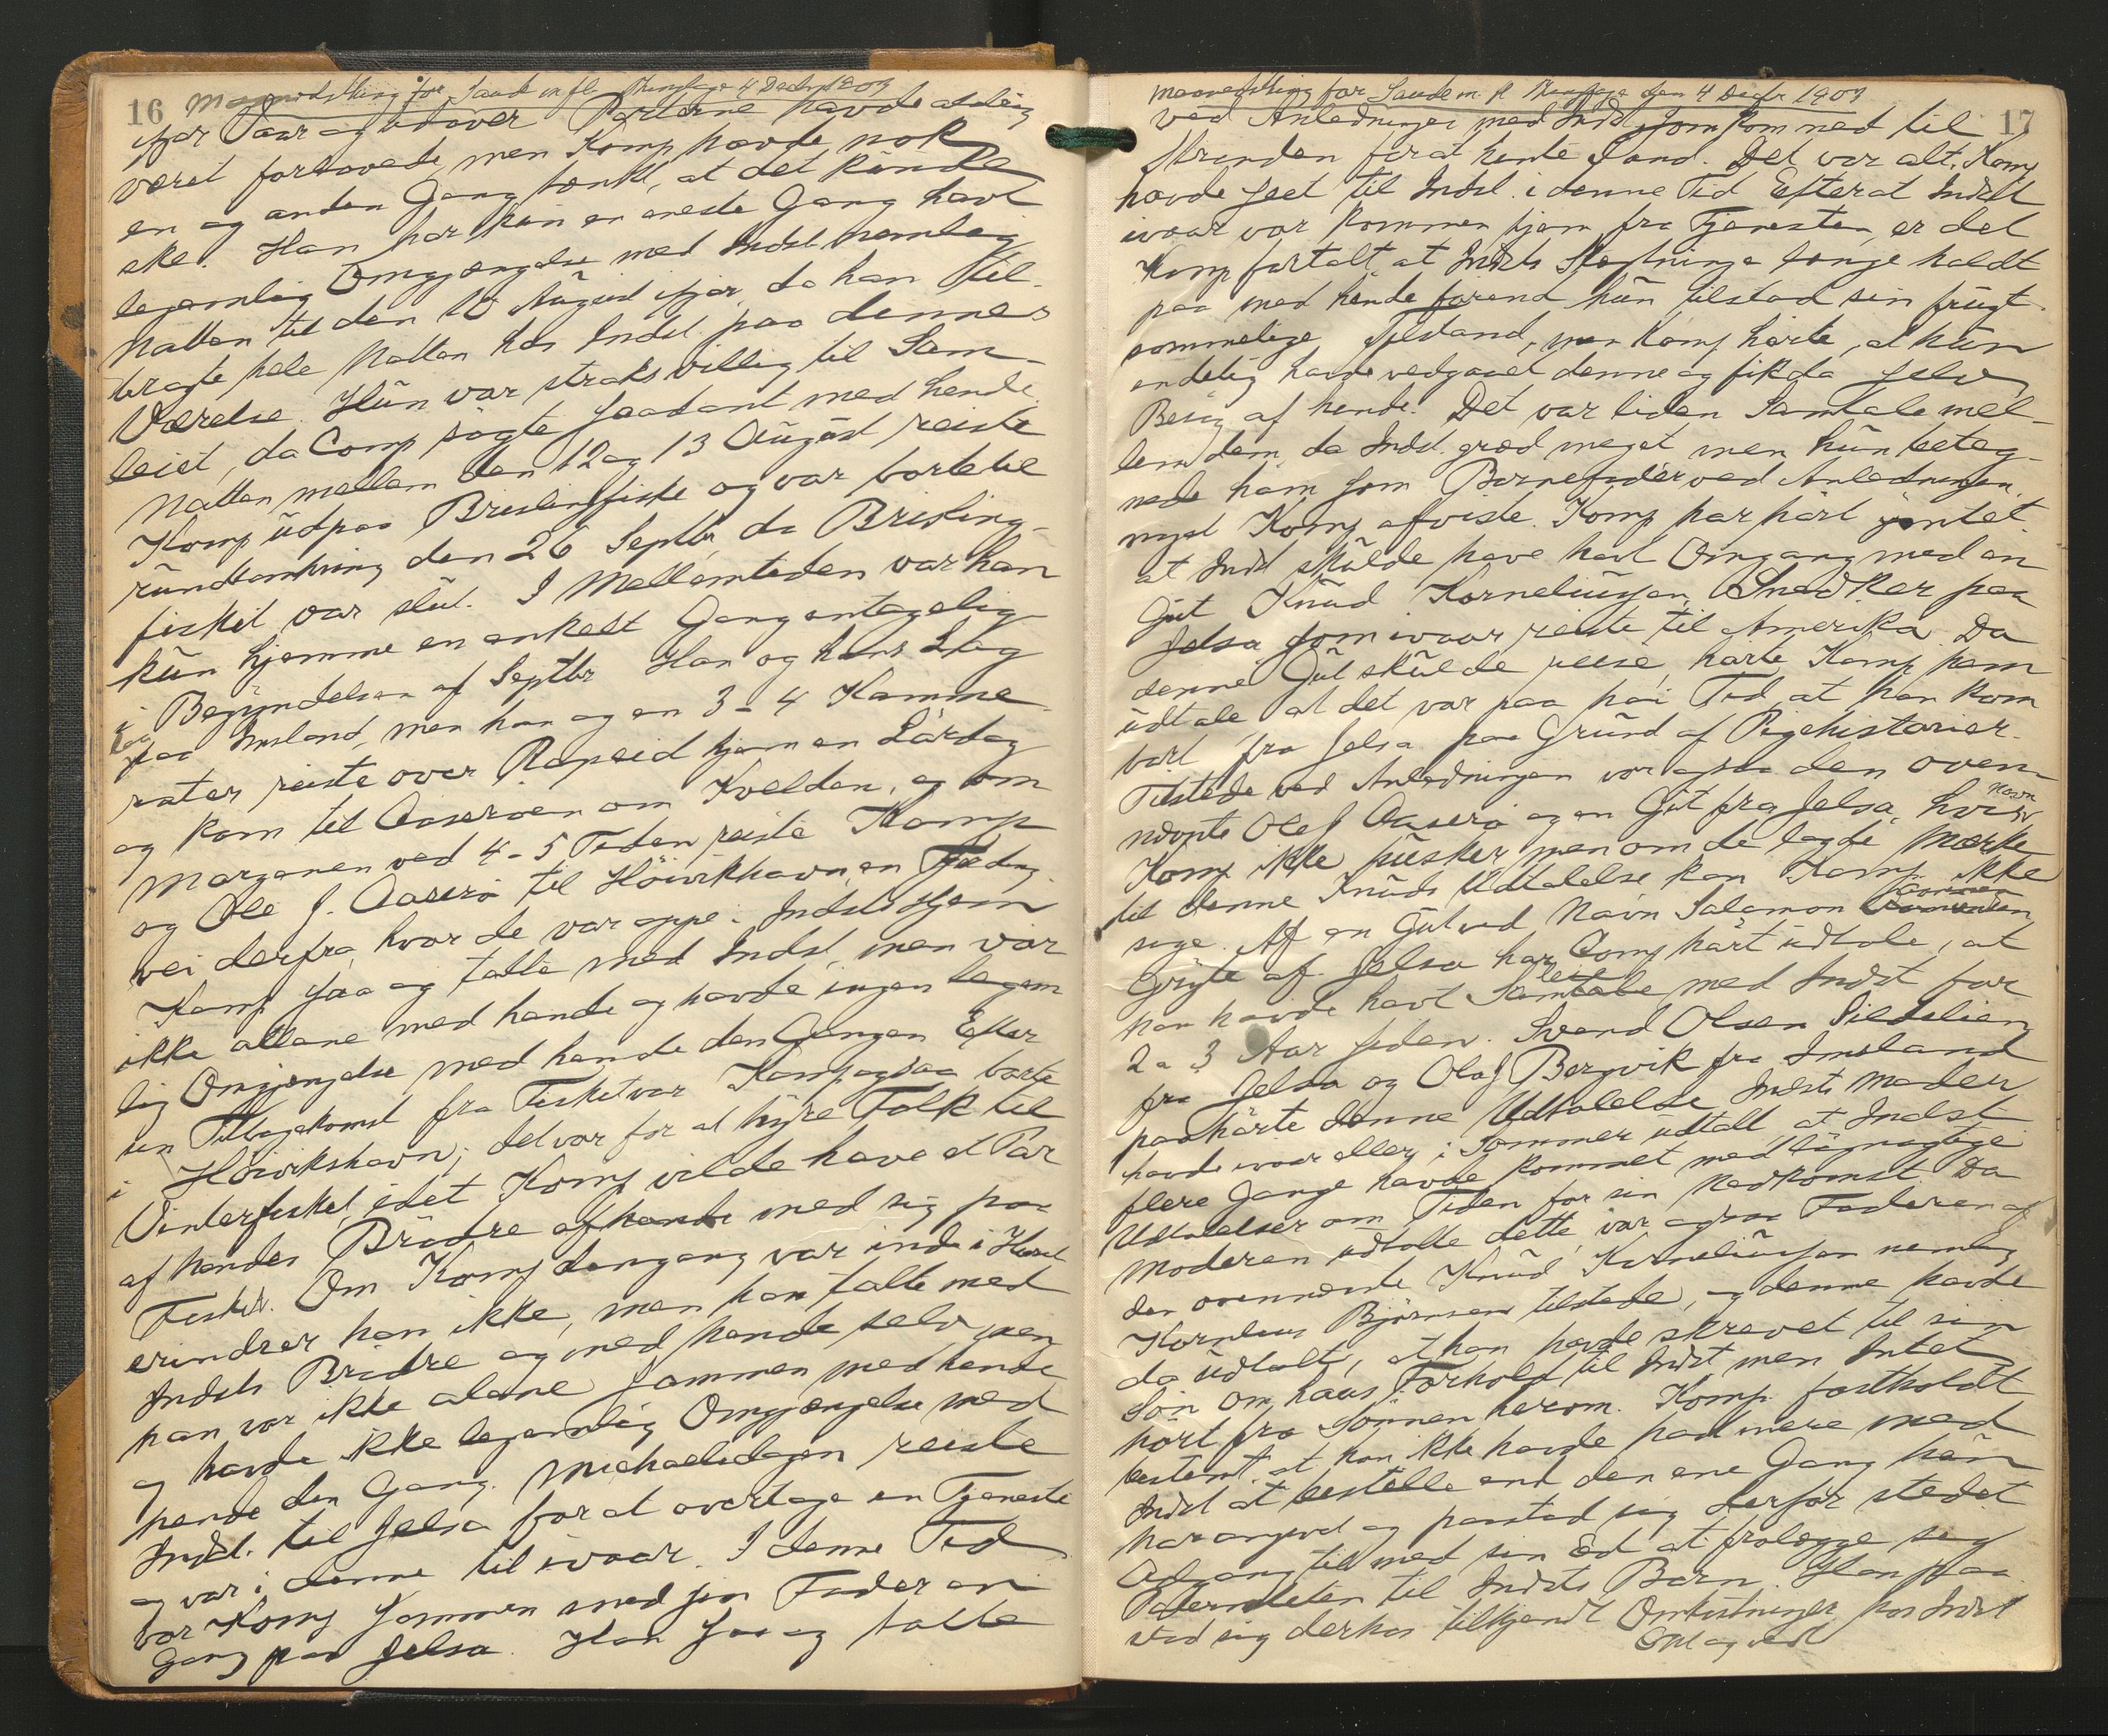 16 Maanedsthing for Saude m fl. Thinglage 4 Decbr 1909
ifjor Vaar og udover Parterne havde aldrig
været forlovede, men Komp havde nok
en og anden Gang tænkt, at det kunde
ske. Han har kun en eneste Gang havt
legemlig Omgjængelse med Indst nemlig
Natten til den 10 August ifjor, da han til-
bragte hele Natten hos Indst paa dennes
Værelse. Hun var straks villig til Sam-
leiet, da Comp søgte saadant med hende.
Natten mellem den 12 og 13 August reiste
Komp ud paa Brislingfiske og var borte til
rundtomkring den 26 Septbr, da Brisling-
fisket var slut. I Mellemtiden var han
kun hjemme en enkelt Gang antagelig
i Begyndelsen af Septbr Han og hans Lag
laa
paa Imsland, men han og en 3-4 Kamme
rater reiste over Ropeid hjem en Lørdag
og kom til Aaserøen om Kvelden, og om
Morgenen ved 4-5 Tiden reiste Komp
og Ole J. Aaserø til Høivikhavn, en Fjerding-
vei derfra, hvor de var oppe i Indsts Hjem
Komp saa og talte med Indst, men var
ikke allene med hende og havde ingen legem
lig Omgjængelse med hende den Gangen Efter
sin Tilbagekomst fra Fisket var Komp ogsaa borte
i Høivikshavn; det var for at hyre Folk til
Vinterfisket, idet Komp vilde have et Par
af hendes Brødre af hende med sig paa
Fisket. Om Komp dengang var inde i Huset
erindrer han ikke, men han talte med
Indsts Brødre og med hende selv, men
han var ikke alene sammen med hende
og havde ikke legemlig Omgjængelse med
hende den Gang. Michaelidagen reiste
Indst. til Jelsa for at overtage en Tjeneste
og var i denne til ivaar. I denne Tid
var Komp sammen med sin Fader en
Gang paa Jelsa. Han saa og talte
Maanedsthing for Saude m. fl Thinglage den 4 Decbr 1909
17
ved Anledningen med Indst som kom ned til
Stranden for at hente Sand. Det var alt, Komp
havde seet til Indst. i denne Tid Efterat Indst
ivaar var kommen hjem fra Tjenesten, er det
Komp fortalt, at Indsts Slegtninge længe holdt
paa med hende førend hun tilstod sin frugt-
sommelige Tilstand, men Komp hørte, at hun
endelig havde vedgaaet denne og fik da selv
Besøg af hende. Det var liden Samtale mel-
lem dem, da Indst. græd meget men hun beteg-
nede ham som Barnefader ved Anledningen,
noget Komp afviste. Komp har hørt ymtet
at Indst skulde have havt Omgang med en
Gut Knud Korneliussen, Snedker paa
Jelsa som ivaar reiste til Amerika. Da
denne Gut skulde reise, hørte Komp ham
udtale, at det var paa høi Tid, at han kom
bort fra Jelsa paa Grund af Pigehistorier.
Tilstede ved Anledningen var ogsaa den oven-
nævnte Ole J Aaserø og en Gut fra Jelsa, hvis Navn
Komp ikke husker, men om de lagde Mærke
til denne Knuds Udtalelse kan Komp ikke
sige. Af en Gut ved Navn Salamon
af Jelsa har Comp hørt udtale, at
han havde havt Samleie med Indst for
2 a 3 Aar siden. Svend Olsen
fra Jelsa og Olaf Bergvik fra Imsland
paahørte denne Udtalelse Indsts Moder
havde ivaar eller i Sommer udtalt, at Indst
flere Gange havde kommet med løgnagtige
Udtalelser om Tiden for sin Nedkomst. Da
Moderen udtalte dette, var ogsaa Faderen af
den ovennævnte Knud Korneliussen nemlig
Kornelius Bjørnsen tilstede, og denne havde
da udtalt, at han havde skrevet til sin
Søn om hans Forhold til Indst men Intet
hørt fra Sønnen herom. Komp. fastholdt
bestemt, at han ikke havde havt mere med
Indst at bestille end den ene Gang han
har angivet og paastod sig derfor stedet
Adgang til med sin Ed at fralægge sig
Paterniteten til Indsts Barn. Han paa
stod sig derhos tilkjendt Omkostninger hos Indst
Opl og vedt